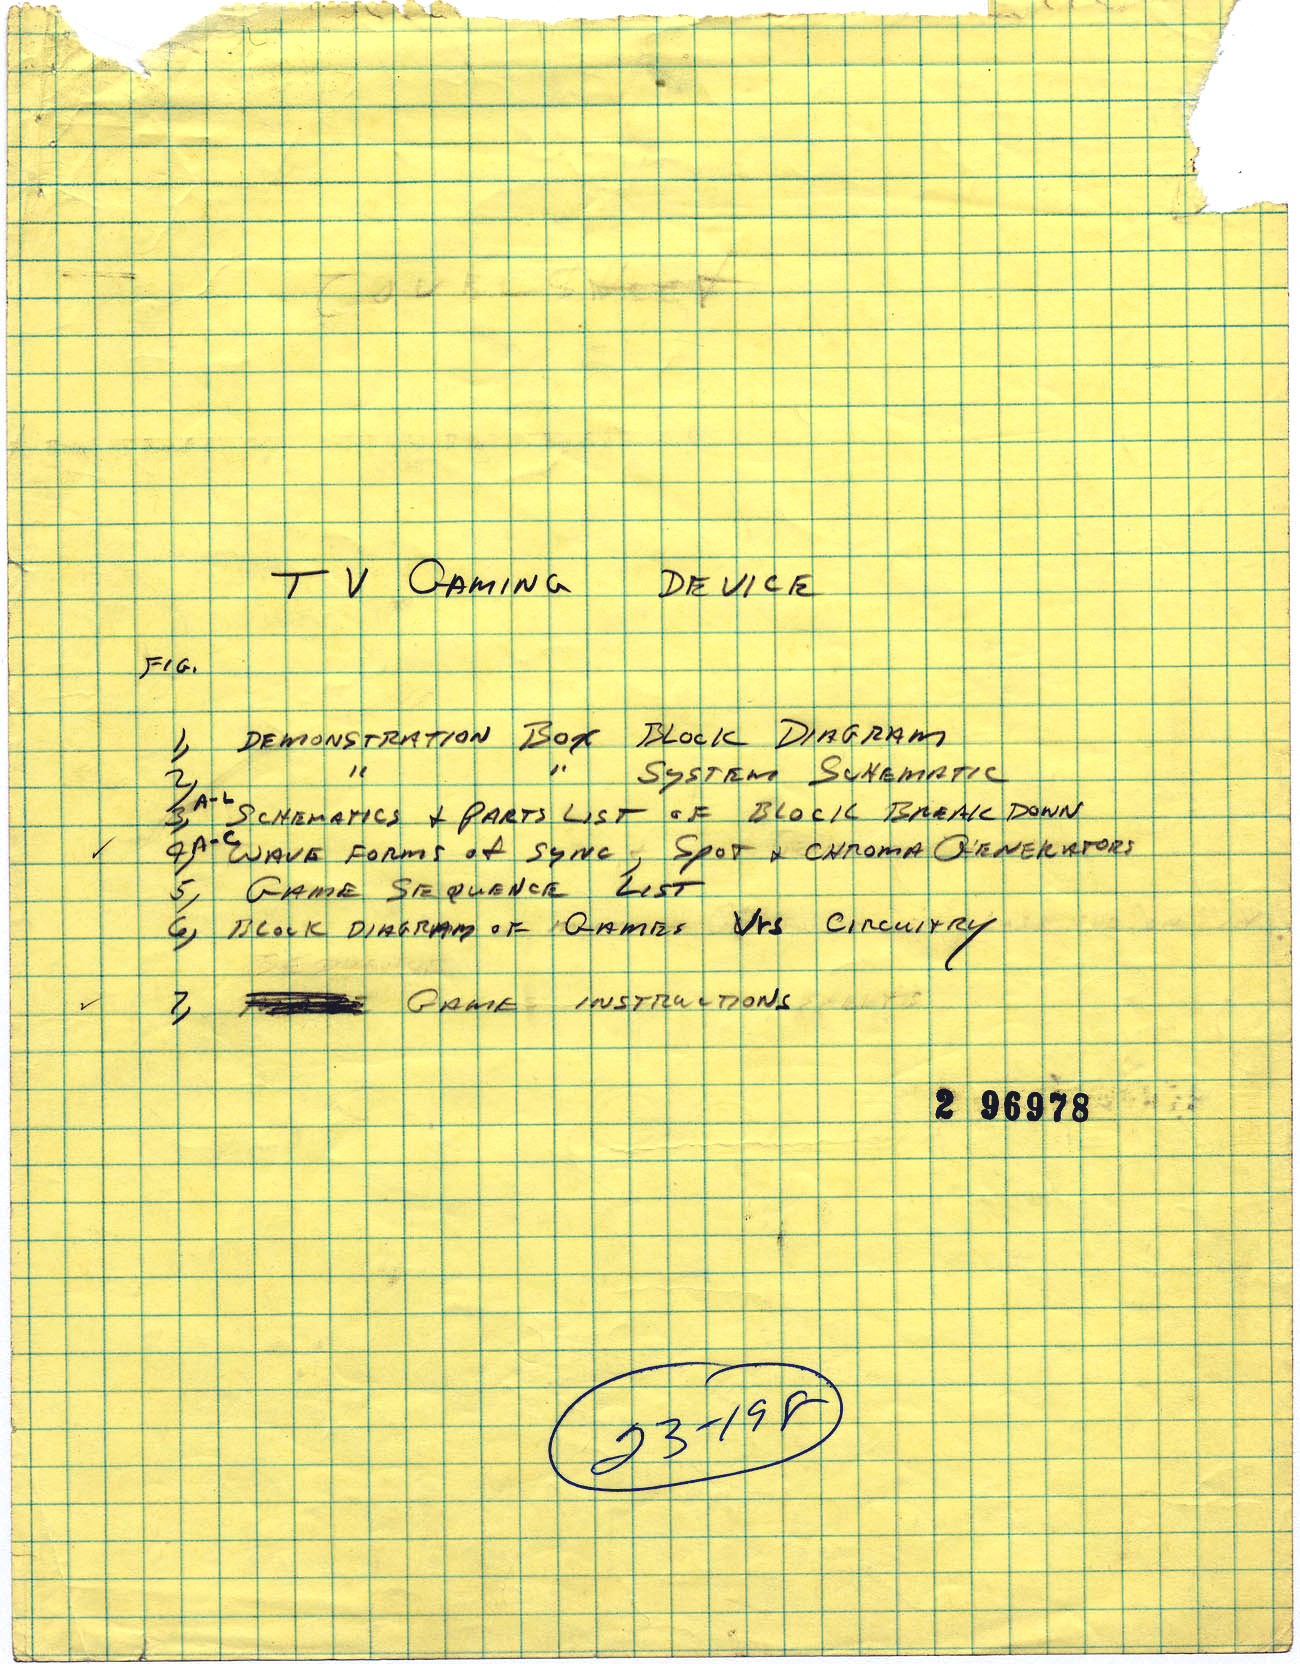 TV GAMING DEVICE
FIG.
1, DEMONSTRATION BOX BLOCK DIAGRAM
2, " " SYSTEM SCHEMATIC
3, A-L SCHEMATICS & PARTS LIST OF BLOCK BREAKDOWN
✓ 4, A-C WAVE FORMS of SYNC, SPOT & CHROMA GENERATORS
5, GAME SEQUENCE LIST
6, BLOCK DIAGRAM OF GAMES Vrs CIRCUITRY
✓ 7, GAME INSTRUCTIONS
2 96978
23-198